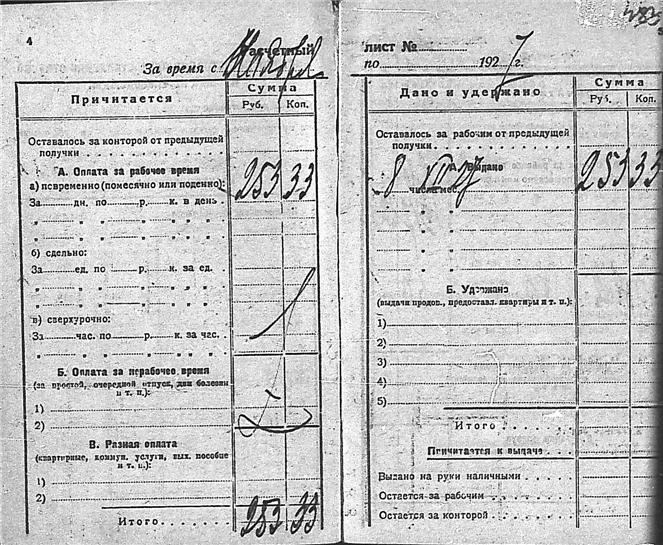 4
Расчетный
За время с
Причитается
Сумма
Руб. Коп.
Оставалось за конторой от предыдущей
получки
А. Оплата за рабочее время
а) повременно (помесячно или поденно):
253 33
За дн. по р. к. в день
" " " " " "
" " " " " "
б) сдельно:
За ед. по р. к. за ед.
" " " " " "
" " " " " "
в) сверхурочно:
За час. по р. к. за час.
" " " " " "
Б. Оплата за нерабочее время
(за простой, очередной отпуск, дни болезни
и т. п.):
1)
2)
В. Разная оплата
(квартирные, коммун. услуги, вых. пособие
и т. п.):
1)
2)
Итого 253 33
лист №
по 1927 г.
Дано и удержано
Сумма
Руб. Коп.
Оставалось за рабочим от предыдущей
получки
А. Выдано
8 числа мес. 253 33
" "
" "
" "
" "
Б. Удержано
(выдачи продов., предоставл. квартиры и т. п.):
1)
2)
3)
4)
5)
Итого
Причитается к выдаче
Выдано на руки наличными
Остается за рабочим
Остается за конторой